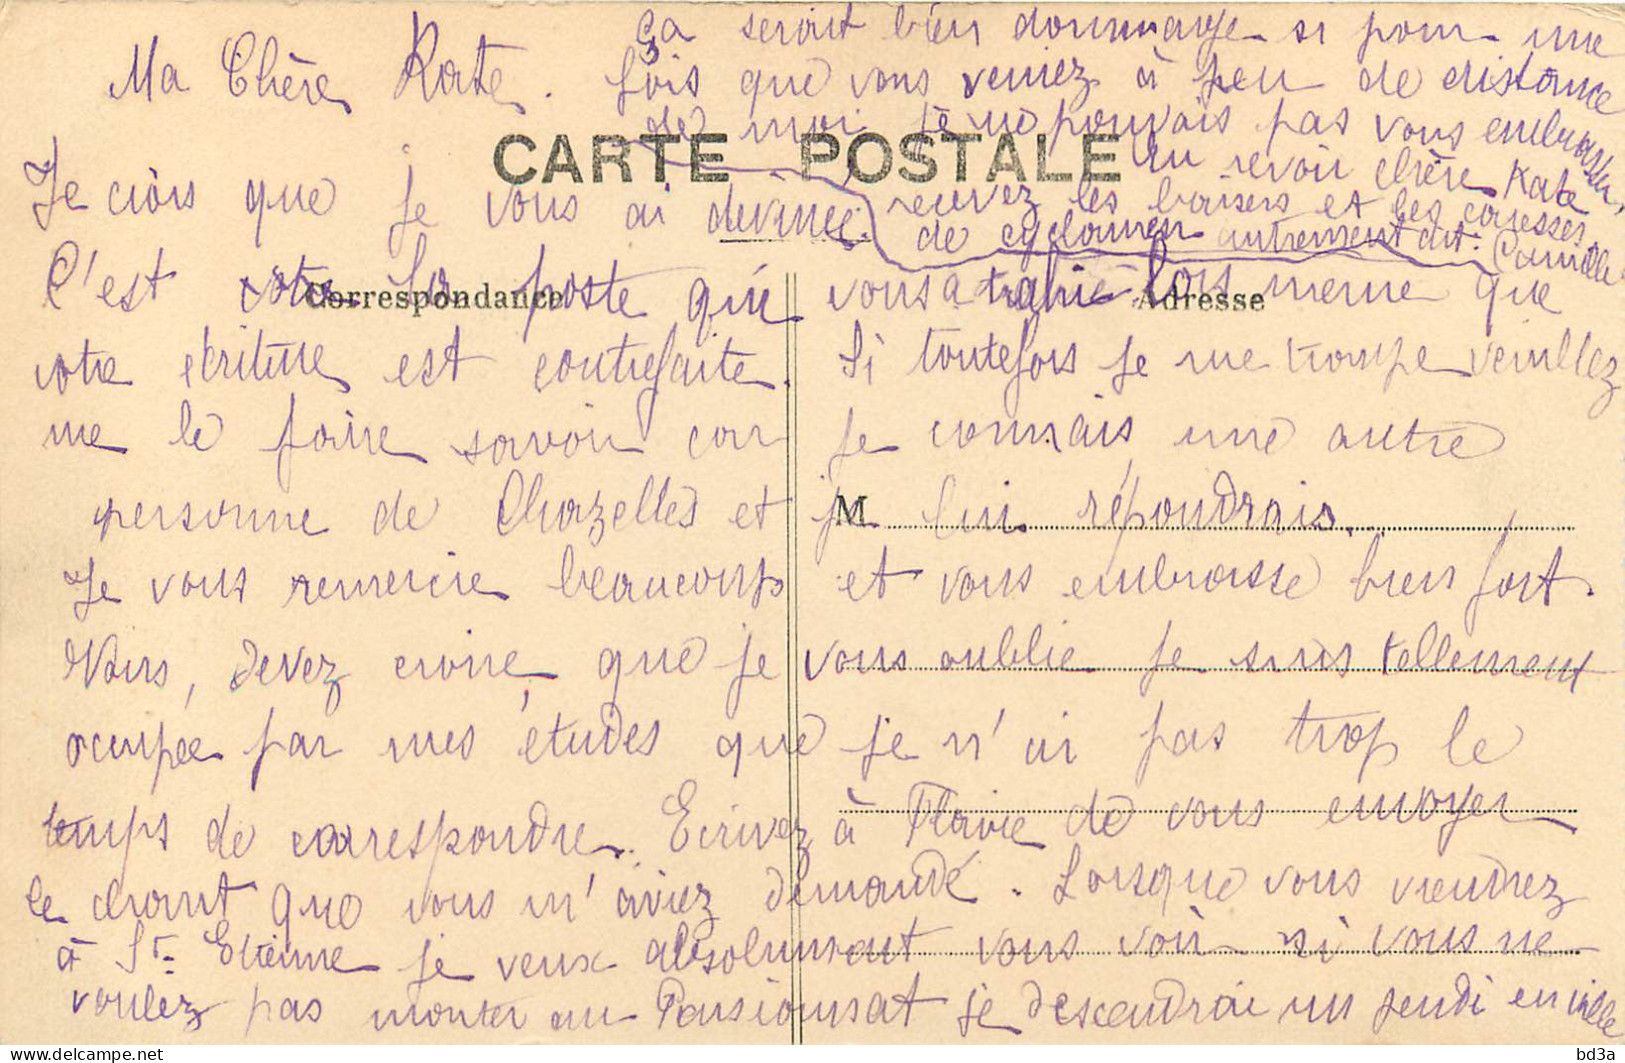 Ma Chère Kate.
CARTE POSTALE
Je crois que je vous ai devinée.
Correspondance
Adresse
C'est votre la poste qui vous a trahie lors meme que
votre écriture est contrefaite. Si toutefois je me trompe veuillez
me le faire savoir car je connais une autre
personne de Chazelles et je lui répondrais.
M
Je vous remercie beaucoup et vous embrasse bien fort.
Vous, devez croire que je vous oublie je suis tellement
occupée par mes études que je n'ai pas trop le
temps de correspondre. Ecrivez à Flavie de vous envoyer
le chant que vous m'aviez demandé. Lorsque vous viendrez
à St- Etienne je veux absolument vous voir si vous ne
voulez pas monter au Pensionnat je descendrai un jeudi en ville
Ça serait bien dommage si pour une
fois que vous veniez à peu de distance
de moi je ne pouvais pas vous embrasser,
au revoir chère Kate
recevez les baisers et les caresses
de cyclamen autrement dit. Camille
bd3a